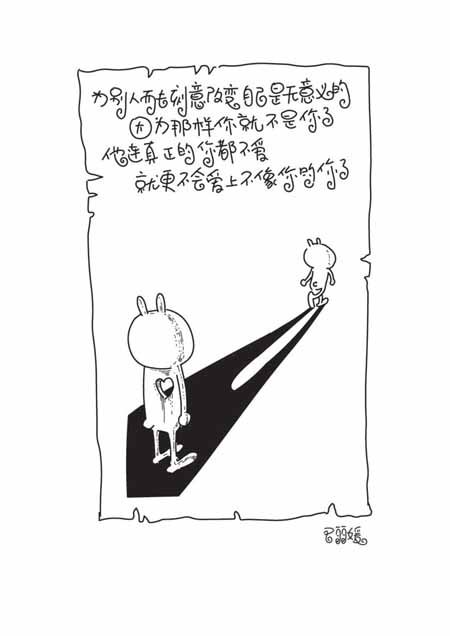 为别人而去刻意改变自己是无意义的
因为那样你就不是你了
他连真正的你都不爱
就更不会爱上不像你的你了